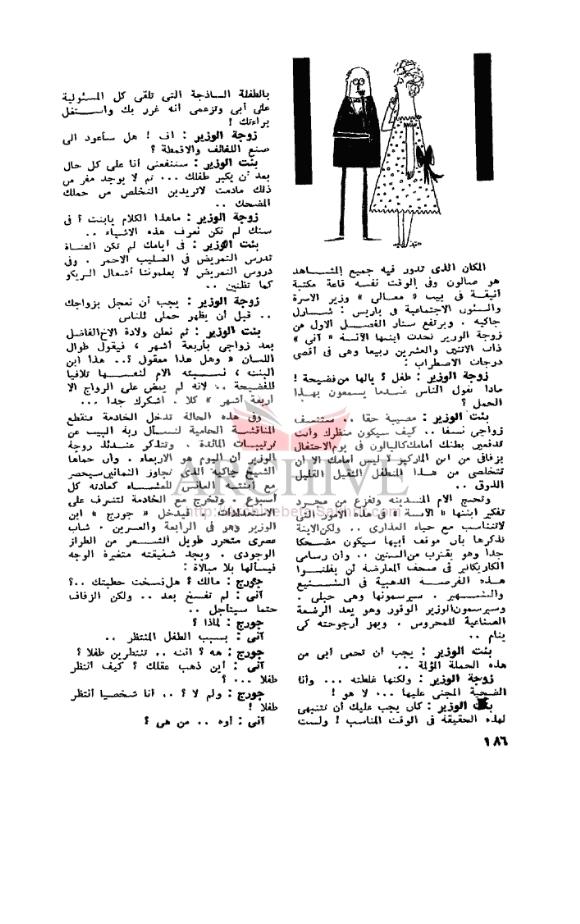 المكان الذى تدور فيه جميع المشاهد
هو صالون وفى الوقت نفسه قاعة مكتبة
أنيقة فى بيت « معالى » وزير الاسرة
والشئون الاجتماعية فى باريس : شارل
جاكيه . ويرتفع ستار الفصل الاول عن
زوجة الوزير تحدث ابنتها الآنسة « آنى »
ذات الاثنين والعشرين ربيعا وهى فى أقصى
درجات الاضطراب :
زوجة الوزير : طفل ؟ يالها من فضيحة !
ماذا نقول الناس عندما يسمعون بهذا
الحمل ؟
بنت الوزير : مصيبة حقا .. ستنسف
زواجى نسفا .. كيف سيكون منظرك وأنت
تدفعين بطنك أمامك كالبالون فى يوم الاحتفال
بزفافى من ابن المركيز ! ليس أمامك الا أن
تتخلصى من هذا المتطفل الثقيل القليل
الذوق ..
وتحتج الام المتدينة وتفزع من مجرد
تفكير ابنتها « الآنسة » فى هذه الامور التى
لاتتناسب مع حياء العذارى .. ولكن الابنة
تذكرها بأن موقف أبيها سيكون مضحكا
جدا وهو يقترب من الستين .. وأن رسامى
الكاريكاتير فى صحف المعارضة لن يفلتوا
هذه الفرصة الذهبية فى التشنيع
والتشهير . سيرسمونها وهى حبلى .
وسيرسمون الوزير الوقور وهو يعد الرضعة
الصناعية للمحروس . ويهز أرجوحته كى
ينام ..
بنت الوزير : يجب أن تحمى أبى من
هذه الحملة المؤلمة ..
زوجة الوزير : ولكنها غلطته ... وأنا
الضحية المجنى عليها ... لا هو !
بنت الوزير : كان يجب عليك أن تتنبهى
لهذه الحقيقة فى الوقت المناسب ! ولست
بالطفلة الساذجة التى تلقى كل المسئولية
على أبى وتزعمى أنه غرر بك واستغل
براءتك !
زوجة الوزير : أف ! هل سأعود الى
صنع اللفائف والاقمطة ؟
بنت الوزير : ستنفعنى أنا على كل حال
بعد أن يكبر طفلك ... ثم لا يوجد مفر من
ذلك مادمت لاتريدين التخلص من حملك
المضحك ..
زوجة الوزير : ماهذا الكلام يابنت ؟ فى
سنك لم نكن نعرف هذه الاشياء ..
بنت الوزير : فى أيامك لم تكن الفتاة
تدرس التمريض فى الصليب الاحمر . وفى
دروس التمريض لا يعلموننا أشغال التريكو
كما تظنين ..
زوجة الوزير : يجب أن نعجل بزواجك
.. قبل أن يظهر حملى للناس
بنت الوزير : ثم نعلن ولادة الاخ الفاضل
بعد زواجى بأربعة أشهر ، فيقول طوال
اللسان « وهل هذا معقول ؟.. هذا ابن
البنت ، نسبته الام لنفسها تلافيا
للفضيحة .. لانه لم يمض على الزواج الا
أربعة أشهر » كلا . أشكرك جدا ...
وفى هذه الحالة تدخل الخادمة فتقطع
المناقشة الحامية لتسأل ربة البيت عن
ترتيبات المائدة . وتتذكر عندئذ زوجة
الوزير أن اليوم هو الاربعاء . وأن حماها
الشيخ جاكيه الذى تجاوز الثمانين سيحضر
مع ابنته العانس للعشاء كعادته كل
أسبوع . وتخرج مع الخادمة لتشرف على
الاستعدادات . فيدخل « جورج » ابن
الوزير وهو فى الرابعة والعشرين . شاب
عصرى متحرر طويل الشعر من الطراز
الوجودى . ويجد شقيقته متغيرة الوجه
فيسألها بلا مبالاة :
جورج : مالك ؟ هل فسخت خطبتك ..؟
آنى : لم تفسخ بعد .. ولكن الزفاف
حتما سيتأجل ..
جورج : لماذا ؟
آنى : بسبب الطفل المنتظر ..
جورج : هه ؟ أنت .. تنتظرين طفلا ؟
آنى : أين ذهب عقلك ؟ كيف أنتظر
طفلا ... ؟
جورج : ولم لا ؟ .. أنا شخصيا أنتظر
طفلا !
آنى : أوه .. من هى ؟
١٨٦
ARCHIVE